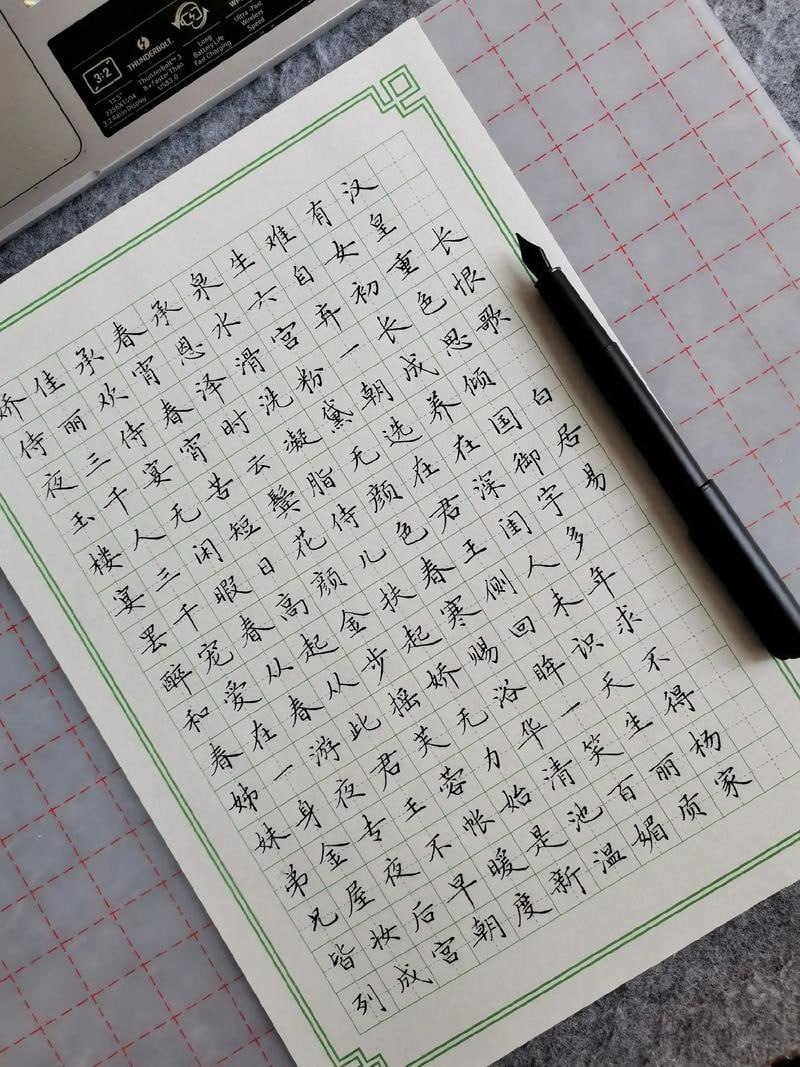 3:2
13.5"
2256X1504
3:2 Ratio Display
THUNDERBOLT™
Thunderbolt™ 3
8× Faster Than
USB3.0
Long
Battery Life
Fast Charging
Ultra-Fast
Wireless
Speed
长恨歌 白居易
汉皇重色思倾国御宇多年求不得杨家
有女初长成养在深闺人未识天生丽质
难自弃一朝选在君王侧回眸一笑百媚
生六宫粉黛无颜色春寒赐浴华清池温
泉水滑洗凝脂侍儿扶起娇无力始是新
承恩泽时云鬓花颜金步摇芙蓉帐暖度
春宵春宵苦短日高起从此君王不早朝
承欢侍宴无闲暇春从春游夜专夜后宫
佳丽三千人三千宠爱在一身金屋妆成
娇侍夜玉楼宴罢醉和春姊妹弟兄皆列